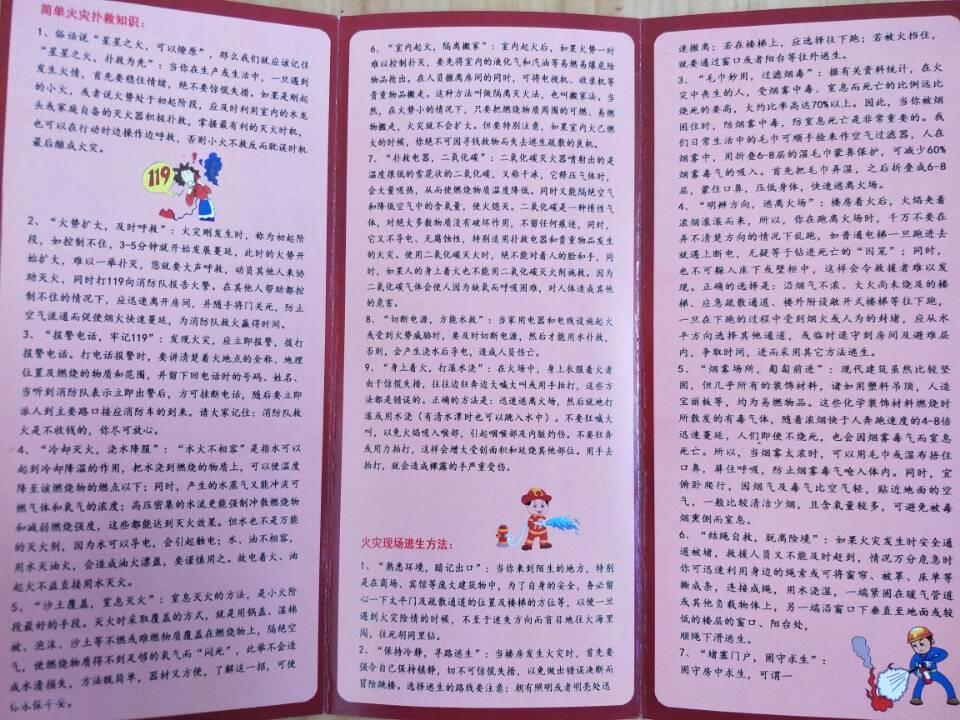 简单火灾扑救知识：
1、俗话说“星星之火，可以燎原”，那么我们就应该记住
“星星之火，扑救为先”：当你在生产及生活中，一旦遇到
发生火情，首先要稳住情绪，绝不要惊慌失措。如果是刚起
的小火，或者说火势处于初起阶段，应及时利用室内的水龙
头或家庭自备的灭火器积极扑救，掌握最有利的灭火时机，
也可以在行动时边操作边呼救，否则小火不救反而耽误时机
最后酿成火灾。
119
2、“火势扩大，及时呼救”：火灾刚发生时，称为初起阶
段，如控制不住，3-5分钟就开始发展蔓延，此时的火势开
始扩大，难以一举扑灭，您就要大声呼救，动员其他人来协
助灭火，同时打119向消防队报告火警。在其他人帮助都控
制不住的情况下，应迅速离开房间，并随手将门关死，防止
空气流通而促使火快速蔓延，为消防队救火赢得时间。
3、“报警电话，牢记119”：发现火灾，应立即报警，拨打
报警电话。打电话报警时，要讲清楚着火地点的全称、地理
位置及燃烧的物质和范围，并留下回电话时的号码、姓名、
当听到消防队表示立即出警后，方可挂断电话，随后要立即
派人到主要路口接应消防车的到来。请大家记住：消防队救
火是不收钱的，你尽可放心。
4、“冷却灭火，浇水降服”：“水火不相容”是指水可以
起到冷却降温的作用，把水浇到燃烧的物质上，可以使温度
降至该燃烧物的燃点以下；同时，产生的水蒸气又能冲淡可
燃气体和氧气的浓度；高压密集的水流更能强制冲散燃烧物
和减弱燃烧强度，这些都能达到灭火效果。但水也不是万能
的灭火剂，因为水可以导电，会引起触电；水、油不相容，
用水灭油火，会造成油火漂盪，要谨慎用之。故电着火、油
起火不益直接用水灭火。
5、“沙土覆盖，窒息灭火”：窒息灭火的方法，是小火阶
段最好的手段。灭火时采取覆盖的方式，就是用锅盖、湿棉
被、泡沫、沙土等不燃或难燃物质覆盖在燃烧物上，隔绝空
气，使燃烧物质得不到足够的氧气而“闷死”，此举不会造
成水渍损失，方法既简单，器材又方便，了解这一招，可使
你永保平安。
6、“室内起火，隔离搬家”：室内起火后，如果火势一时
难以控制扑灭，要先将室内的液化气和汽油等易燃易爆危险
物品抢出。在人员搬离房间的同时，可将电视机、收录机等
贵重物品搬走。这种方法叫做隔离灭火法，也叫搬家法。当
然，在火势小的情况下，只要把燃烧物质周围的可燃、易燃
物搬走，火灾就不会扩大。但要特别注意，如果室内火已燃
大的时候，你绝不可因寻找救物而失去逃生疏散的良机。
7、“扑救电器，二氧化碳”：二氧化碳灭火器喷射出的是
温度很低的雪花状的二氧化碳，又称干冰，它释压气体时，
会大量吸热，从而使燃烧物质温度降低。同时又能隔绝空气
和降低空气中的含氧量，使火熄灭。二氧化碳是一种惰性气
体，对绝大多数物质没有破坏作用，不留任何痕迹，同时，
它又不导电、无腐蚀性，特别适用扑救电器和贵重物品发生
的火灾。使用二氧化碳灭火时，绝不能对着人的脸和手，同
时，如果人的身上着火也不能用二氧化碳灭火剂施救。因为
二氧化碳气体会使人因为缺氧而呼吸困难，对人体造成其他
的危害。
8、“切断电源，方能水救”：当家用电器和电线设施起火
或受到火势威胁时，要及时切断电源，然后才能用水扑救，
否则，会产生浇水后导电，造成人员伤亡。
9、“身上着火，打滚水浇”：在火场中，身上衣服着火者
由于惊慌失措，往往边狂奔边大喊大叫或用手拍打，这些方
法都是错误的。正确的方法是：迅速逃离火场，然后就地打
滚或用水浇（有清水潭时也可以跳入水中），不要狂喊大
叫，以免火焰吸入喉部，引起咽喉部及内脏灼伤。不要狂奔
或用力拍打，这样会增大受创面积和延烧其他部位。用手去
拍打，就会造成裸露的手严重受伤。
火灾现场逃生方法：
1、“熟悉环境，暗记出口”：当你来到陌生的地方，特别
是在商场、宾馆等庞大建筑物中，为了自身的安全，务必留
心一下太平门及疏散通道的位置及楼梯的方位等，以使一旦
遇到火灾险情的时候，不至于迷失方向而盲目地往火海里
闯，往死胡同里钻。
2、“保持冷静，寻路逃生”：当楼房发生火灾时，首先要
强令自己保持镇静，切不可惊慌失措，以免做出错误决断而
冒险跳楼。选择逃生的路线要注意：朝有照明或者明亮处迅
速搬离；若在楼梯上，应选择往下跑；若被火挡住，
就要通过窗口或者阳台等往外逃生。
3、“毛巾妙用，过滤烟毒”：据有关资料统计，在火
灾中丧生的人，受烟雾中毒、窒息而死亡的比例远比
烧死的要高，大约比率高达70%以上。因此，当你被烟
困住时，防烟雾中毒，防窒息死亡是非常重要的。我
们日常生活中的毛巾可顺手捡来作空气过滤器，人在
烟雾中，用折叠6-8层的湿毛巾蒙鼻保护，可减少60%
烟雾毒气的吸入。首先把毛巾弄湿，之后折叠成6-8
层，蒙住口鼻，压低身体，快速逃离火场。
4、“明辨方向，逃离火场”：楼房着火后，火焰夹着
浓烟滚滚而来，所以，你在跑离火场时，千万不要在
弄不清楚方向的情况下乱跑，如普通电梯一旦跑进去
就遇上断电，无疑等于钻进死亡的“囚笼”；同时，
也不可躲入床下或壁柜中，这样会令救援者难以发
现。正确的选择是：沿烟气不浓、大火尚未烧及的楼
梯、应急疏散通道、楼外附设敞开式楼梯等往下跑，
一旦在下跑的过程中受到烟火或人为的封堵，应从水
平方向选择其他通道，或临时退守到房间及避难层
内，争取时间，进而采用其它方法逃生。
5、“烟雾场所，匍匐前进”：现代建筑虽然比较坚
固，但几乎所有的装饰材料，诸如用塑料吊顶，人造
宝丽板等，均为易燃物品。这些化学装饰材料燃烧时
所散发的有毒气体，随着浓烟快于人奔跑速度的4-8倍
迅速蔓延，人们即使不烧死，也会因烟雾毒气而窒息
死亡。所以，当烟雾太浓时，可以用毛巾或湿布捂住
口鼻，屏住呼吸，防止烟雾毒气呛入体内。同时，宜
俯卧爬行，因烟气及毒气比空气轻，贴近地面的空
气，一般比较清洁少烟，且含氧量较多，可避免被毒
烟熏倒而窒息。
6、“结绳自救，脱离险境”：如果火灾发生时安全通
道被堵，救援人员又不能及时赶到，情况万分危急时
你可迅速利用身边的绳索或可将窗帘、被罩、床单等
撕成条，连接成绳，用水浇湿，一端紧固在暖气管道
或其他负载物体上，另一端沿窗口下垂直至地面或较
低的楼层的窗口、阳台处，
顺绳下滑逃生。
7、“堵塞门户，困守求生”：
困守房中求生，可谓一